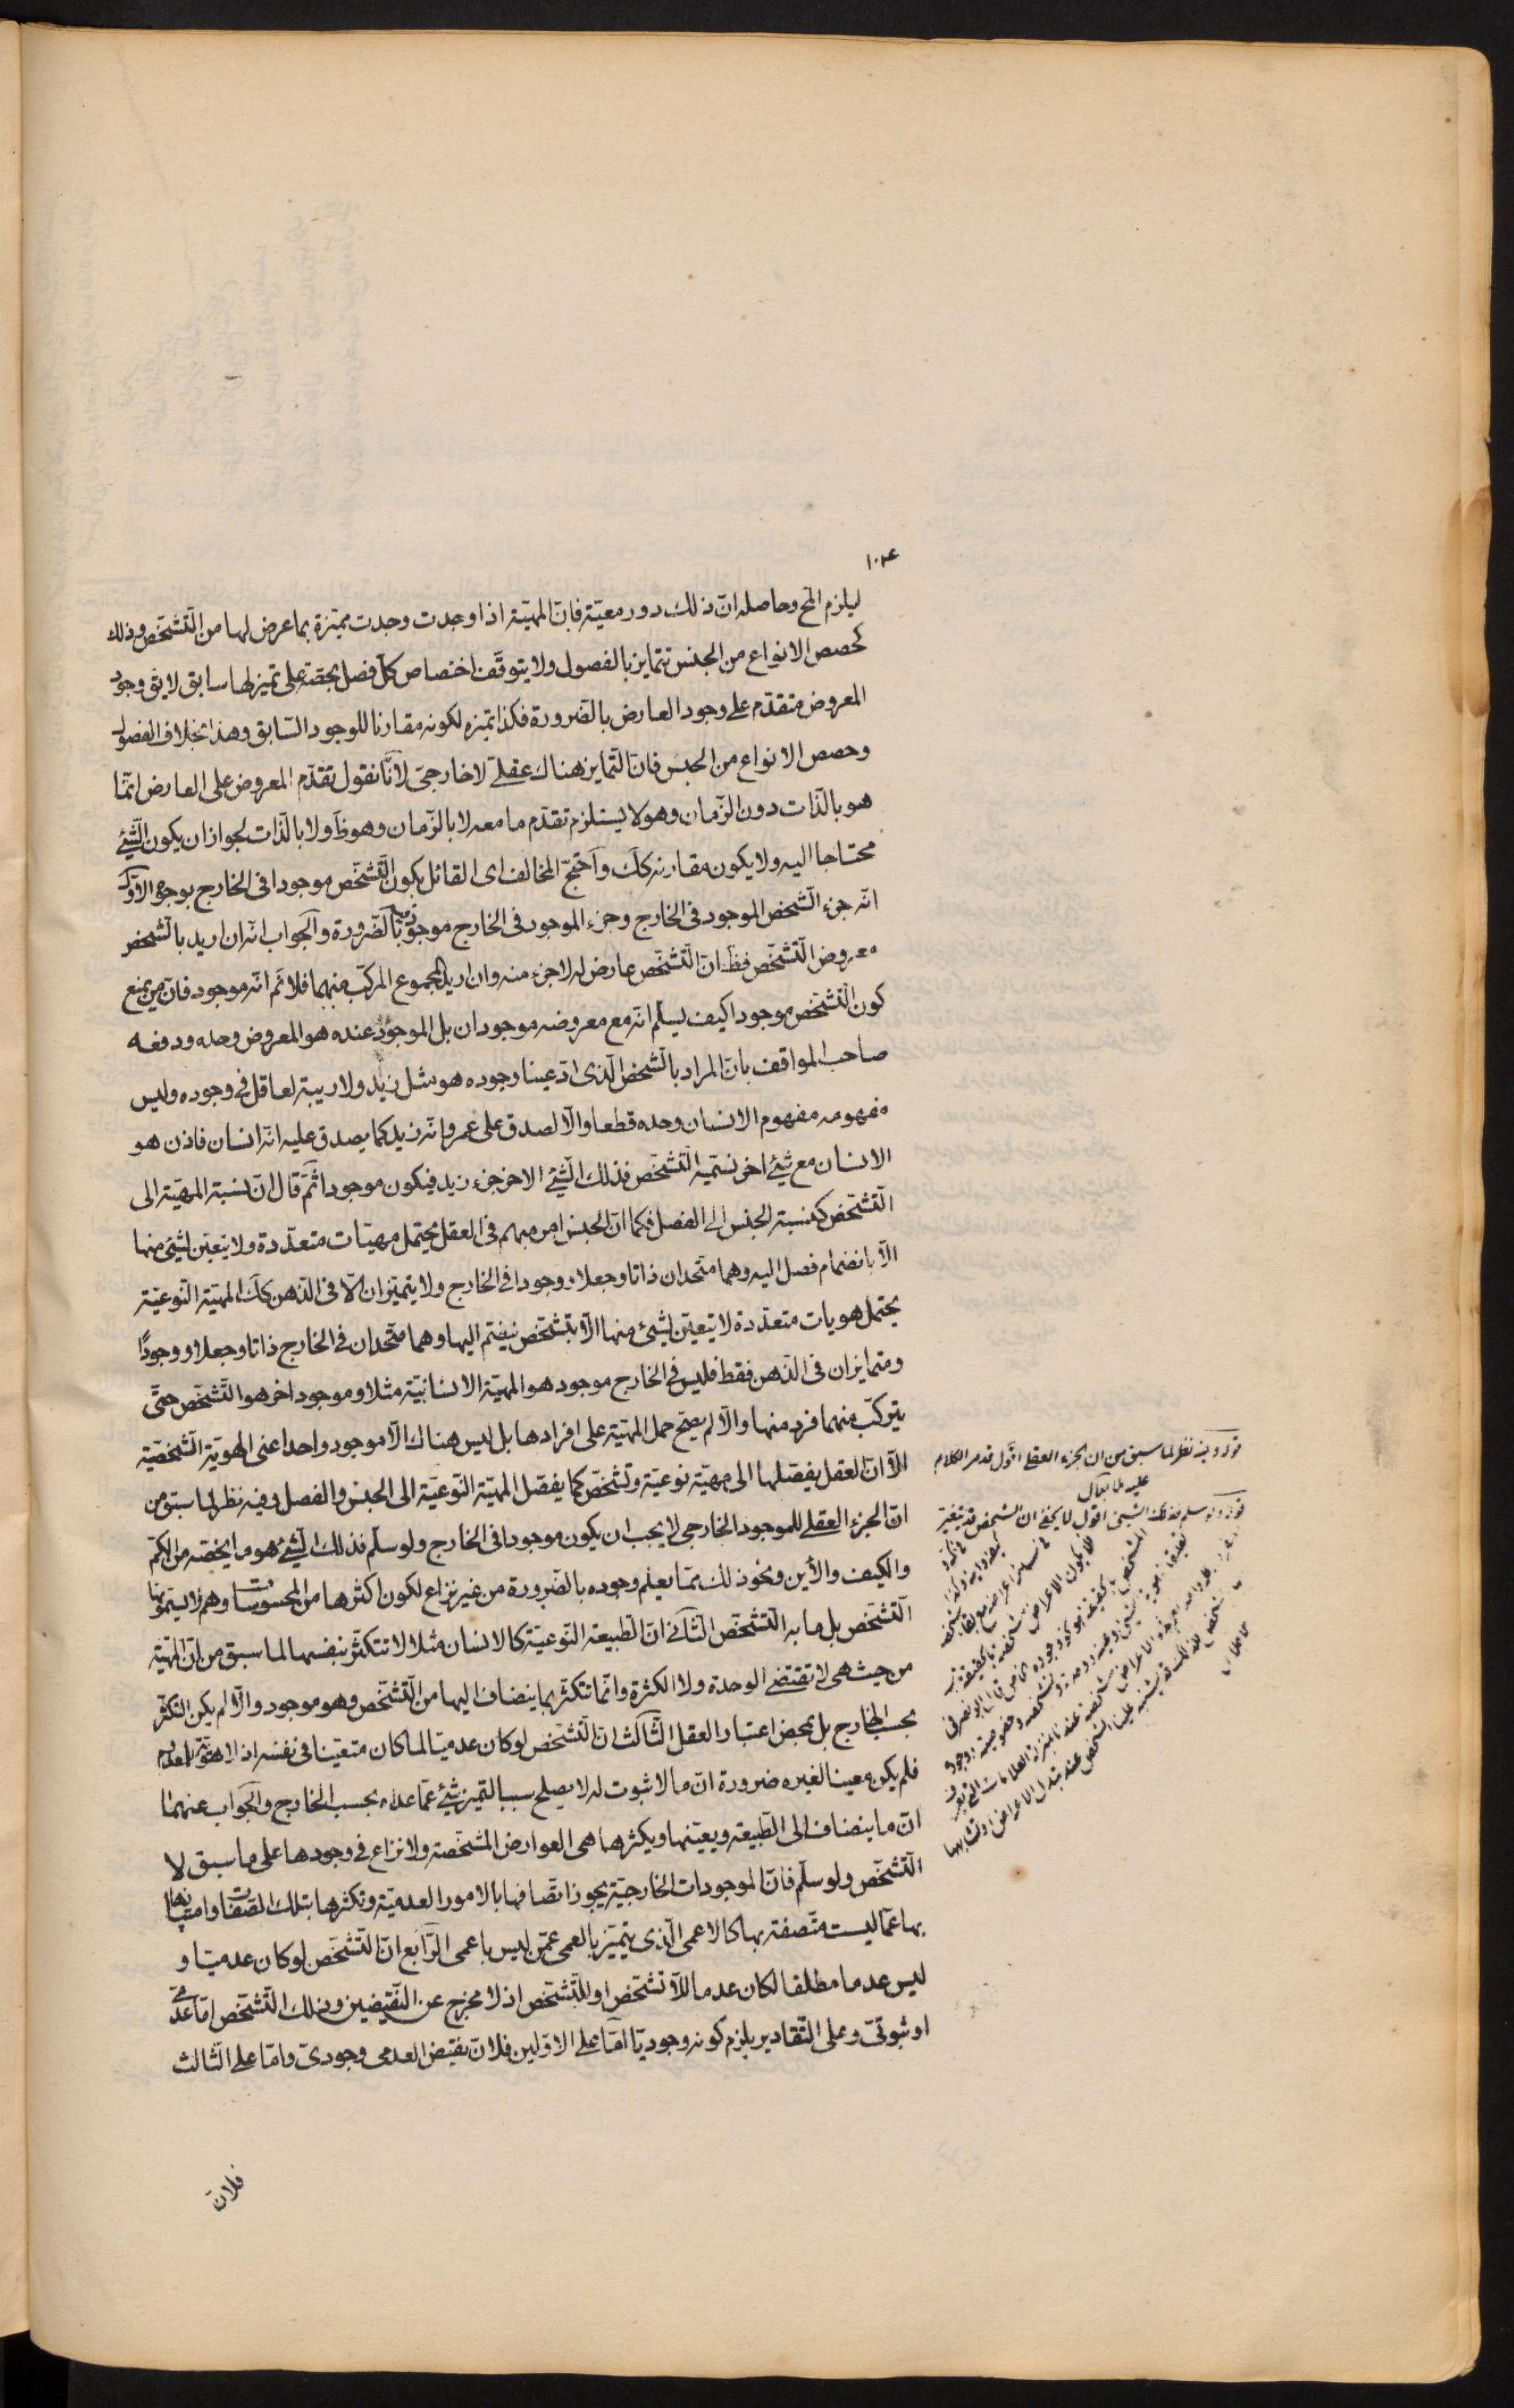 ١٠٤
ليلزم المح وحاصله ان ذلك دور معية فان المهية اذا وجدت وجدت مميزة بما عرض لها من التشخص وذلك
كحصص الانواع من الجنس تتمايز بالفصول ولا يتوقف اختصاص كل فصل بحصة على تميز لها سابق لا يق وجود
المعروض متقدم على وجود العارض بالضرورة فكذا تميزه لكونه مقارنا للوجود السابق وهذا بخلاف الفصول
وحصص الانواع من الجنس فان التمايز هناك عقلي لا خارجي لانا نقول تقدم المعروض على العارض انما
هو بالذات دون الزمان وهو لا يستلزم تقدم ما معه لا بالزمان وهو ظ ولا بالذات لجواز ان يكون الشئ
محتاجا اليه ولا يكون مقارنه كك واحتج المخالف اى القائل بكون التشخص موجودا فى الخارج بوجوه الاول
انه جزء الشخص الموجود فى الخارج وجزء الموجود فى الخارج موجود بالضرورة والجواب انه ان اريد بالشخص
معروض التشخص فظ ان التشخص عارض له لا جزء منه وان اريد المجموع المركب منهما فلا نم انه موجود فان من يمنع
كون التشخص موجودا كيف يسلم انه مع معروضه موجودان بل الموجود عنده هو المعروض وحده ودفعه
صاحب المواقف بان المراد بالشخص الذى ادعينا وجوده هو مثل زيد ولا ريبة لعاقل فى وجوده وليس
مفهومه مفهوم الانسان وحده قطعا والا لصدق على عمرو انه زيد كما يصدق عليه انه انسان فاذن هو
الانسان مع شئ اخر نسميه التشخص فذلك الشئ الاخر جزء زيد فيكون موجودا ثم قال ان نسبة المهية الى
التشخص كنسبة الجنس الى الفصل فكما ان الجنس امر مبهم فى العقل يحتمل مهيات متعددة ولا يتعين لشئ منها
الا بانضمام فصل اليه وهما متحدان ذاتا وجعلا ووجودا فى الخارج ولا يتميزان الا فى الذهن كك المهية النوعية
يحتمل هويات متعددة لا يتعين لشئ منها الا بتشخص ينضم اليها وهما متحدان فى الخارج ذاتا وجعلا ووجودًا
ومتمايزان فى الذهن فقط فليس فى الخارج موجود هو المهية الانسانية مثلا وموجود اخر هو التشخص حتى
يتركب منهما فرد منها والا لم يصح حمل المهية على افرادها بل ليس هناك الا موجود واحد اعنى الهوية الشخصية
الا ان العقل يفصلها الى مهية نوعية وتشخص كما يفصل المهية النوعية الى الجنس والفصل وفيه نظر لما سبق من
ان الجزء العقلى للموجود الخارجى لا يجب ان يكون موجودا فى الخارج ولو سلم فذلك الشئ هو ما يخصه من الكم
والكيف والأين ونحو ذلك مما يعلم وجوده بالضرورة من غير نزاع لكون اكثرها من المحسوسات وهم لا يسمونها
التشخص بل ما به التشخص الثانى ان الطبيعة النوعية كالانسان مثلا لا تتكثر بنفسها لما سبق من ان المهية
من حيث هى لا تقتضى الوحدة ولا الكثرة وانما تتكثر بما ينضاف اليها من التشخص وهو موجود والا لم يكن التكثر
بحسب الخارج بل بمحض اعتبار العقل الثالث ان التشخص لو كان عدميا لما كان متعينا فى نفسه اذ لا هوية للمعدوم
فلم يكن معينا لغيره ضرورة ان ما لا ثبوت له لا يصلح سببا لتميز شئ عما عداه بحسب الخارج والجواب عنهما
ان ما ينضاف الى الطبيعة ويعينها ويكثرها هى العوارض المشخصة ولا نزاع فى وجودها على ما سبق لا
التشخص ولو سلم فان الموجودات الخارجية يجوز اتصافها بالامور العدمية وتكثرها بتلك الصفات وامتيازها
بها عما ليست متصفة بها كالاعمى الذى يتميز بالعمى عمن ليس باعمى الرابع ان التشخص لو كان عدميا و
ليس عدما مطلقا لكان عدما للاتشخص او للتشخص اذ لا مخرج عن النقيضين وذلك التشخص اما عدمى
او ثبوتى وعلى التقادير يلزم كونه وجوديا اما على الاولين فلان نقيض العدمى وجودى واما على الثالث
فلان
قوله وفيه نظر لما سبق من ان الجزء العقلى اقول قد مر الكلام
عليه
قوله ولو سلم فذلك الشئ اقول لا يخفى ان الشخص قد يتغير